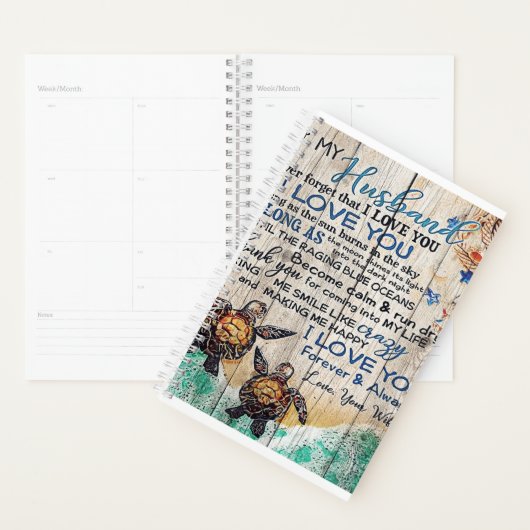 Week/Month:
Week/Month:
Notes
MY
Husband
ver forget that I LOVE YOU
I LOVE YOU
ng as the sun burns in the sky
LONG AS the moon shines its light
into the dark night
IL THE RAGING BLUE OCEANS
Become calm & run dr
ank you for coming into MY LIFE
ING ME SMILE LIKE crazy
and MAKING ME HAPPY
I LOVE YO
Forever & Alwa
Love, Your Wi